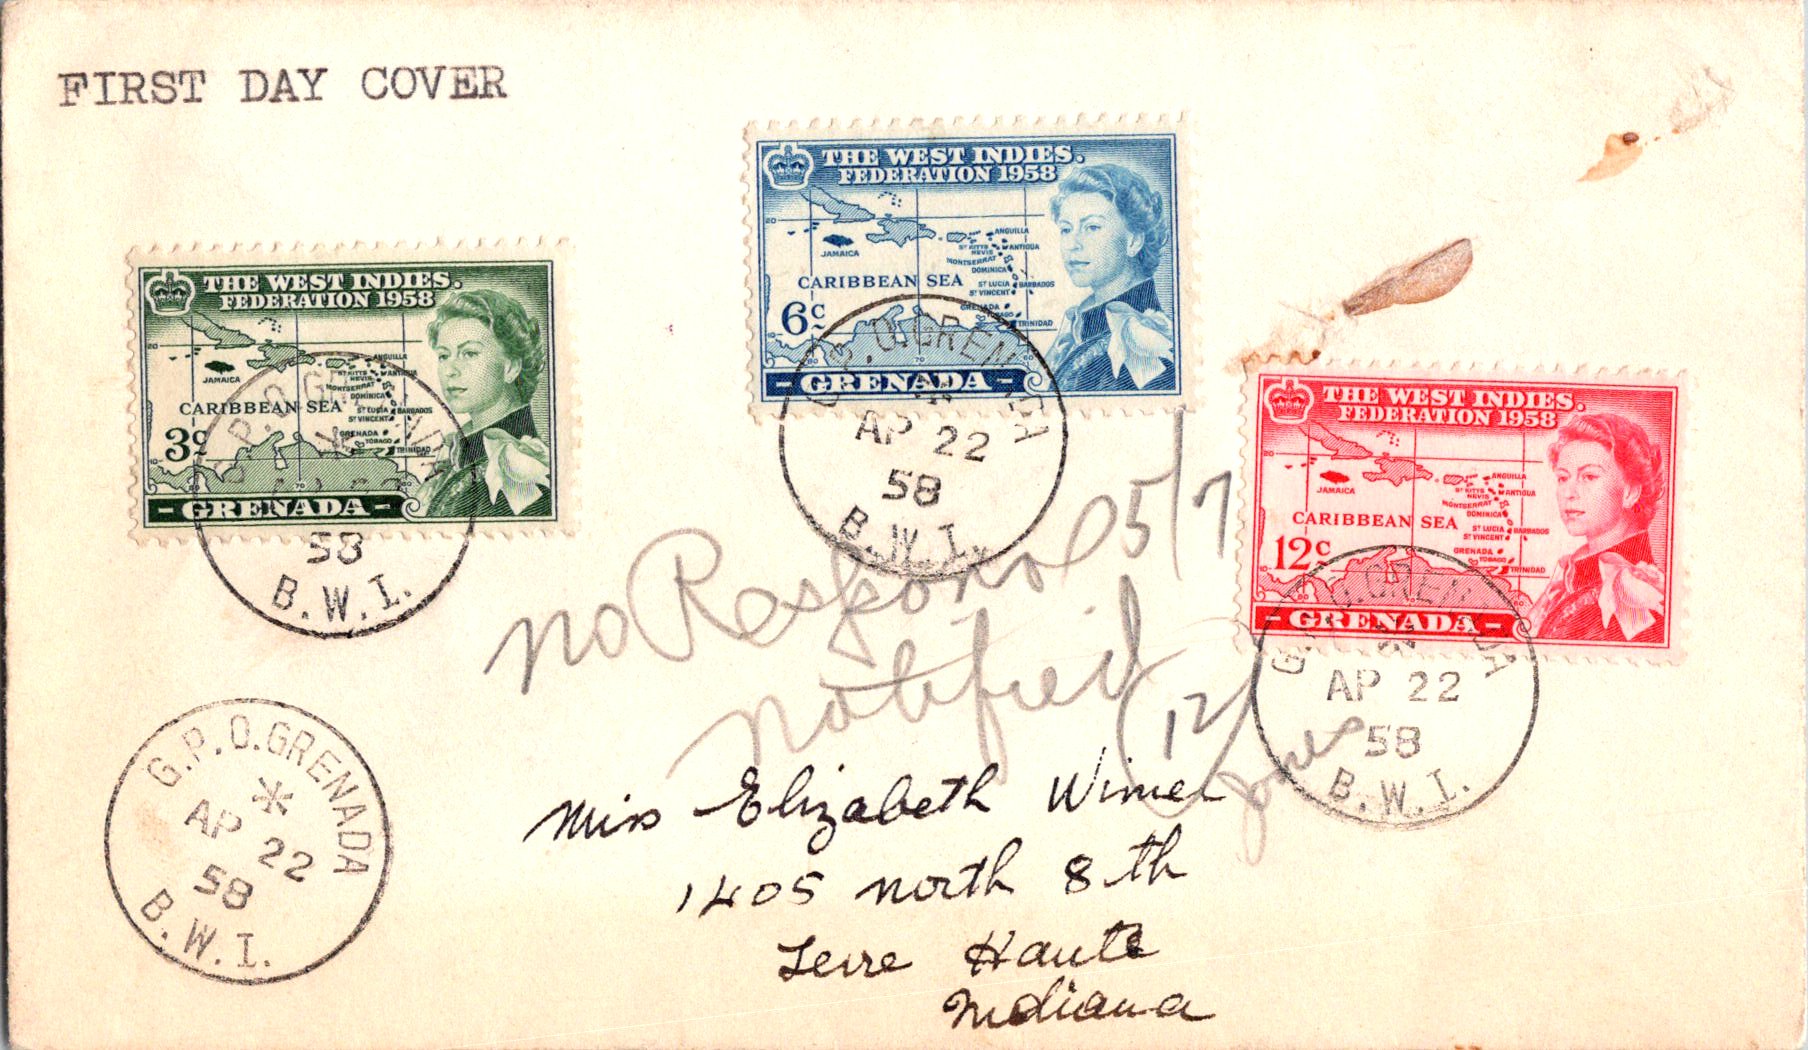 FIRST DAY COVER
THE WEST INDIES.
FEDERATION 1958
ANGUILLA
ST KITTS
NEVIS
ANTIGUA
MONTSERRAT
JAMAICA
DOMINICA
CARIBBEAN SEA
ST LUCIA
BARBADOS
ST VINCENT
6c
GRENADA
TRINIDAD
- GRENADA -
G.P.O. GRENADA
AP 22
58
B.W.I.
THE WEST INDIES.
FEDERATION 1958
ANGUILLA
ST KITTS
NEVIS
ANTIGUA
MONTSERRAT
JAMAICA
DOMINICA
CARIBBEAN SEA
ST LUCIA
BARBADOS
ST VINCENT
3c
GRENADA
TOBAGO
TRINIDAD
- GRENADA -
G.P.O. GRENADA
58
B.W.I.
THE WEST INDIES.
FEDERATION 1958
ANGUILLA
ST KITTS
NEVIS
ANTIGUA
MONTSERRAT
JAMAICA
DOMINICA
CARIBBEAN SEA
ST LUCIA
BARBADOS
ST VINCENT
12c
GRENADA
TOBAGO
TRINIDAD
- GRENADA -
G.P.O. GRENADA
AP 22
58
B.W.I.
no Response 5/7
notified
(12)
Jones
G.P.O. GRENADA
AP 22
58
B.W.I.
Miss Elizabeth Wimer
1405 north 8th
Terre Haute
Indiana